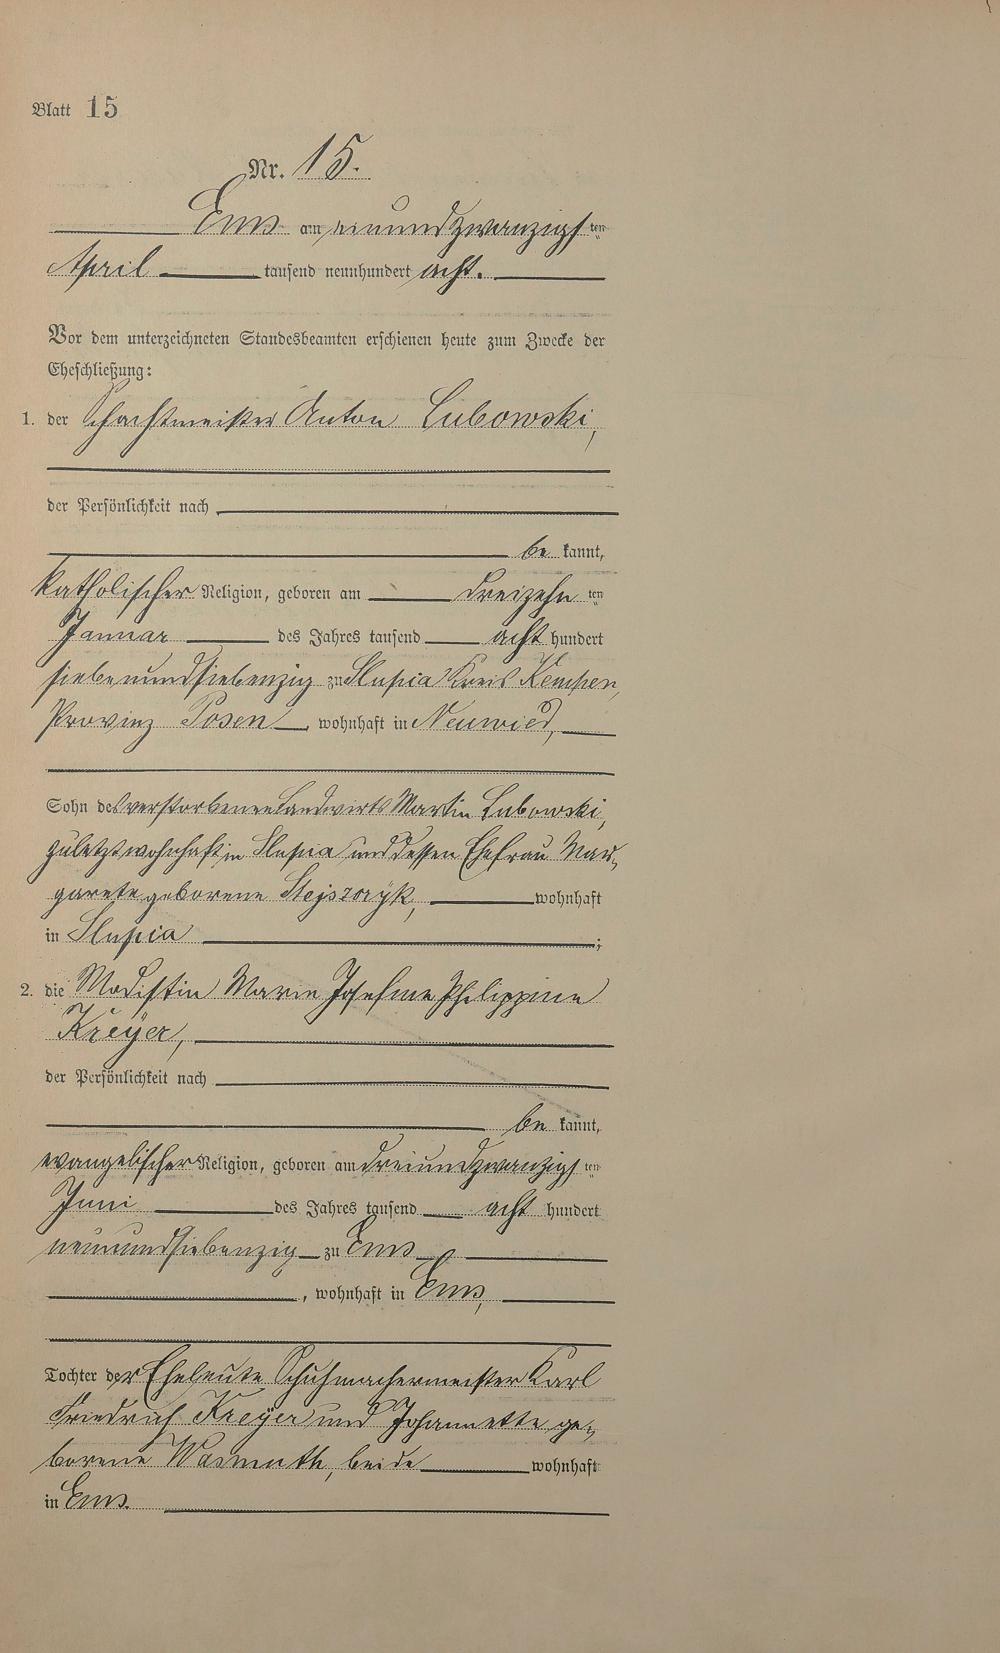 Blatt 15
Nr. 15.
Ems am neunundzwanzigsten
April tausend neunhundert acht.
Vor dem unterzeichneten Standesbeamten erschienen heute zum Zwecke der
Eheschließung:
1. der Schachtmeister Anton Lubowski,
der Persönlichkeit nach
be kannt,
katholischer Religion, geboren am dreizehn ten
Januar des Jahres tausend acht hundert
siebenundsiebenzig zu Slupia Kreis Kempen,
Provinz Posen, wohnhaft in Neuwied,
Sohn des verstorbenen Landwirts Martin Lubowski,
zuletzt wohnhaft in Slupia und dessen Ehefrau Mar-
garete geborene Stejszorÿk, wohnhaft
in Slupia ;
2. die Modistin Marie Josefine Philippine
Kreÿer,
der Persönlichkeit nach
be kannt,
evangelischer Religion, geboren am dreiundzwanzigsten
Juni des Jahres tausend acht hundert
neunundsiebenzig zu Ems
, wohnhaft in Ems,
Tochter der Eheleute Schuhmachermeister Karl
Friedrich Kreÿer und Johannette ge-
borene Wasmuth, beide wohnhaft
in Ems.